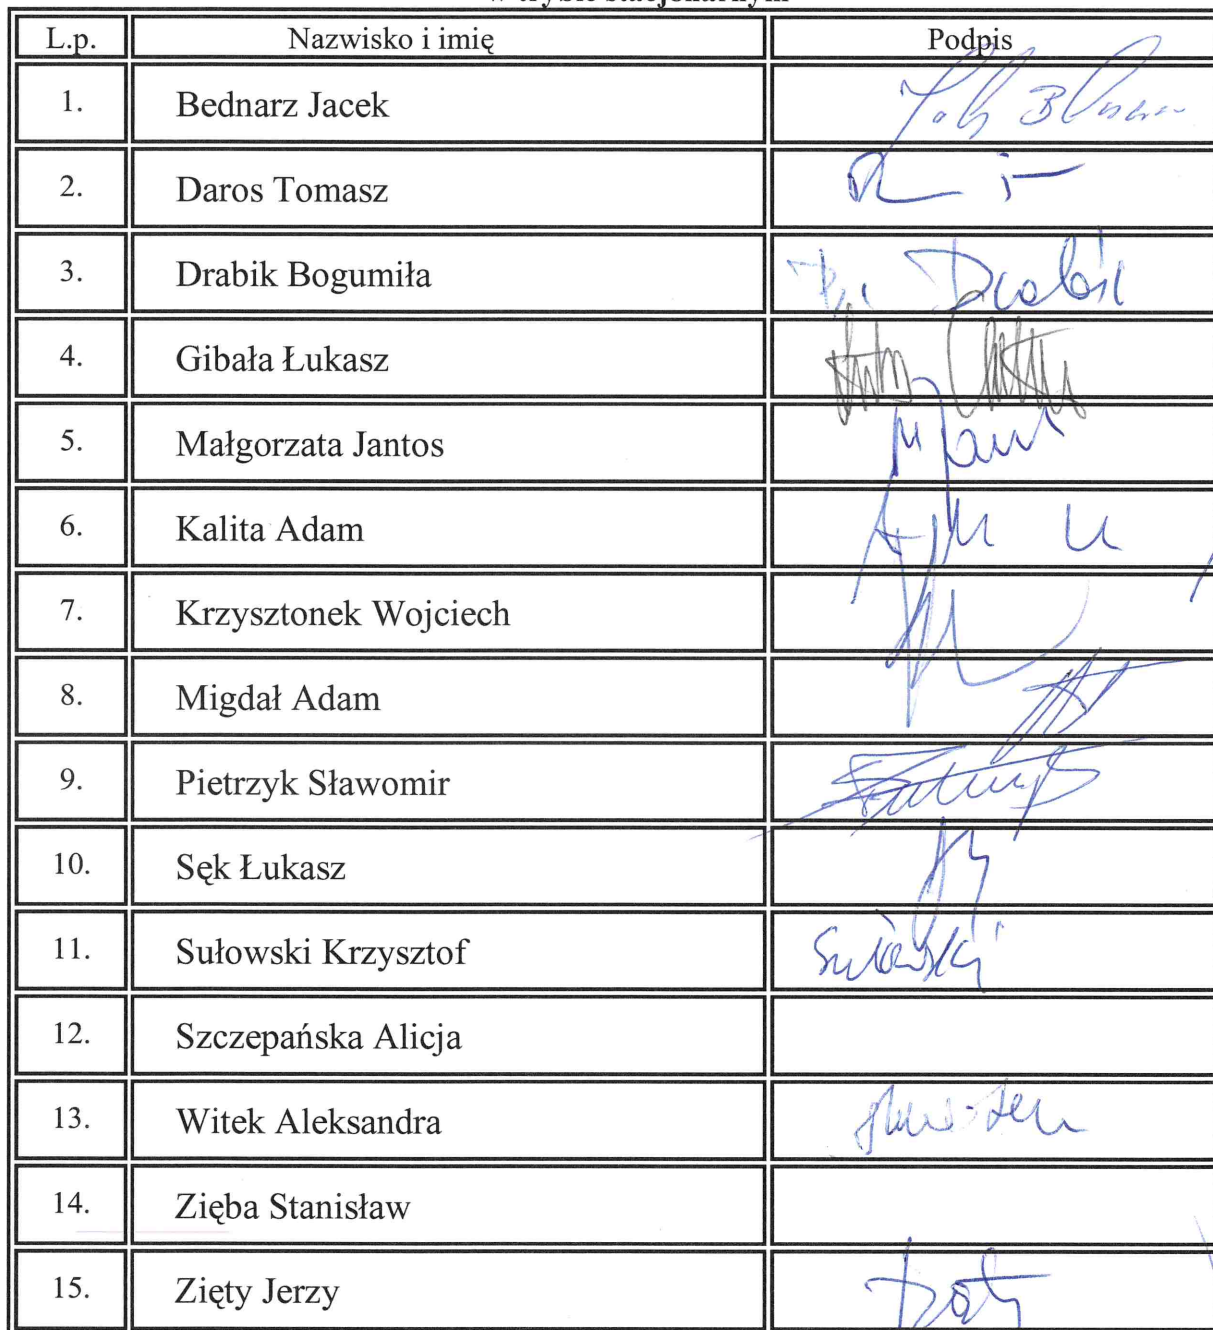 w trybie stacjonarnym
L.p. Nazwisko i imię Podpis
1. Bednarz Jacek
2. Daros Tomasz
3. Drabik Bogumiła Drabik
4. Gibała Łukasz
5. Małgorzata Jantos
6. Kalita Adam
7. Krzysztonek Wojciech
8. Migdał Adam
9. Pietrzyk Sławomir
10. Sęk Łukasz
11. Sułowski Krzysztof Sułowski
12. Szczepańska Alicja
13. Witek Aleksandra
14. Zięba Stanisław
15. Zięty Jerzy